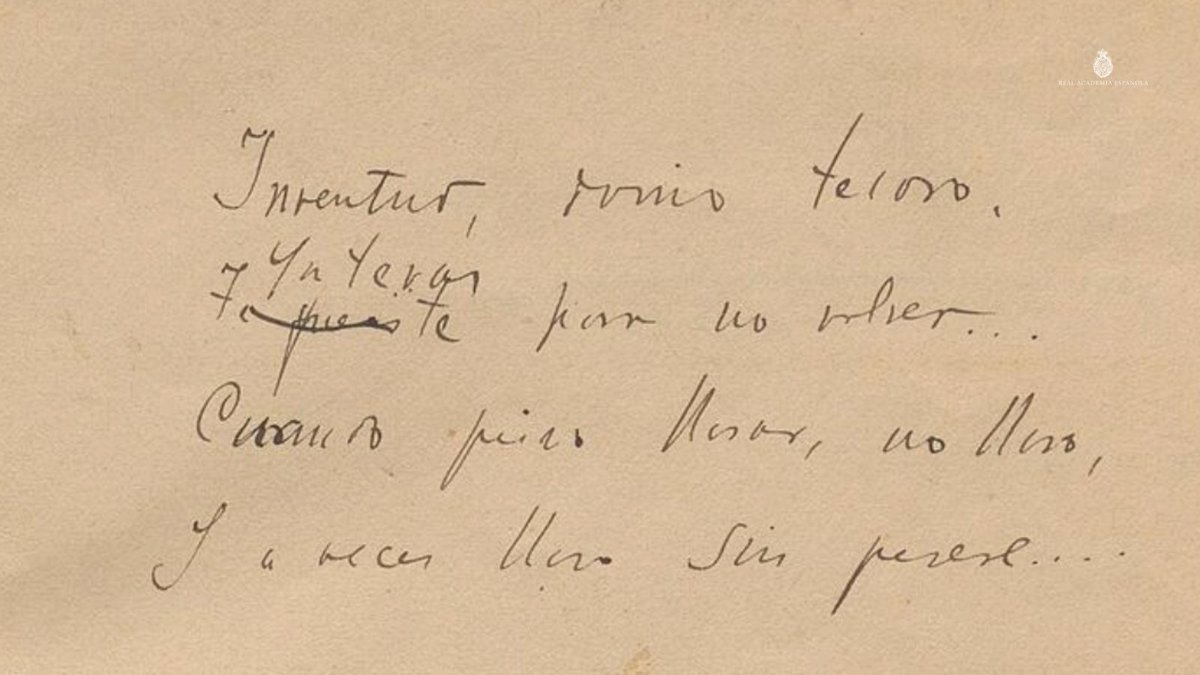 REAL ACADEMIA ESPAÑOLA
Juventud, divino tesoro.
Ya te vas
Te fuiste para no volver...
Cuando quiero llorar, no lloro,
Y a veces lloro sin querer...